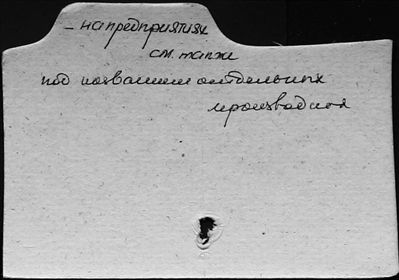 – на предприятии
см. также
под названием отдельных
производная